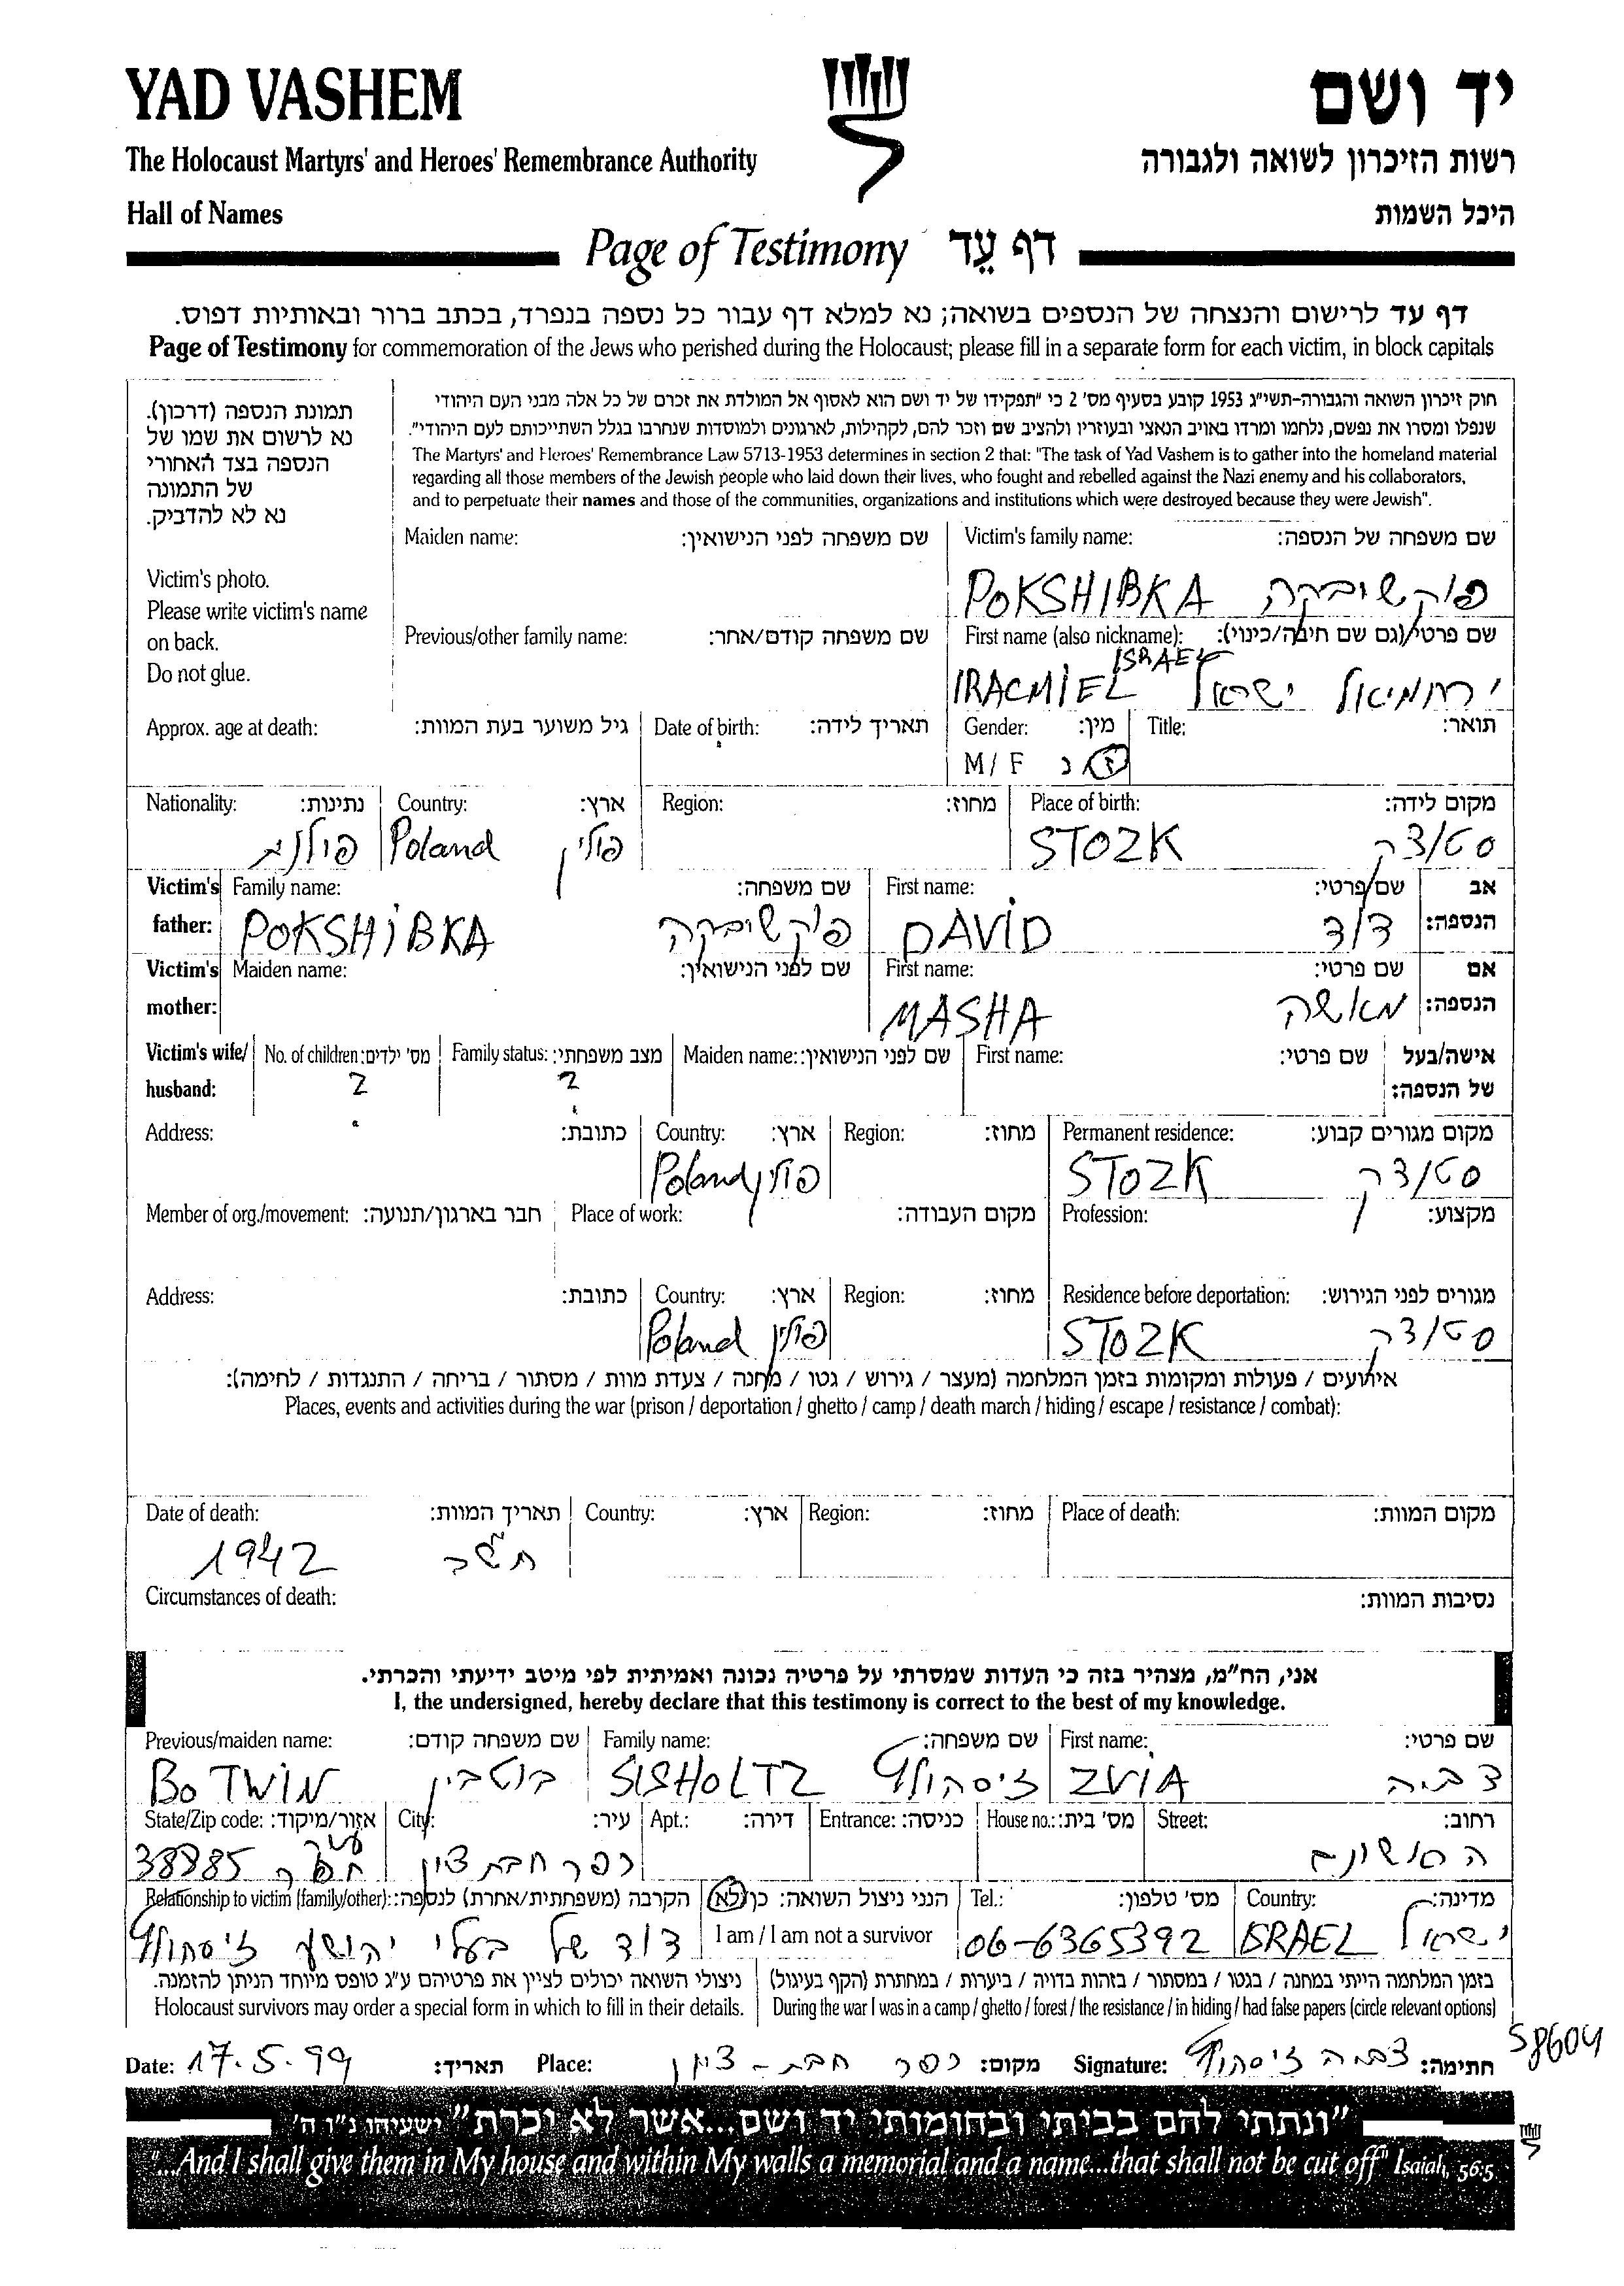 YAD VASHEM
יד ושם
The Holocaust Martyrs' and Heroes' Remembrance Authority
רשות הזיכרון לשואה ולגבורה
Hall of Names
היכל השמות
Page of Testimony דף עֵד
דף עד לרישום והנצחה של הנספים בשואה; נא למלא דף עבור כל נספה בנפרד, בכתב ברור ובאותיות דפוס.
Page of Testimony for commemoration of the Jews who perished during the Holocaust; please fill in a separate form for each victim, in block capitals
תמונת הנספה (דרכון).
נא לרשום את שמו של
הנספה בצד האחורי
של התמונה
נא לא להדביק.
Victim's photo.
Please write victim's name
on back.
Do not glue.
חוק זיכרון השואה והגבורה-תשי"ג 1953 קובע בסעיף מס' 2 כי "תפקידו של יד ושם הוא לאסוף אל המולדת את זכרם של כל אלה מבני העם היהודי
שנפלו ומסרו את נפשם, נלחמו ומרדו באויב הנאצי ובעוזריו ולהציב שם וזכר להם, לקהילות, לארגונים ולמוסדות שנחרבו בגלל השתייכותם לעם היהודי".
The Martyrs' and Heroes' Remembrance Law 5713-1953 determines in section 2 that: "The task of Yad Vashem is to gather into the homeland material
regarding all those members of the Jewish people who laid down their lives, who fought and rebelled against the Nazi enemy and his collaborators,
and to perpetuate their names and those of the communities, organizations and institutions which were destroyed because they were Jewish".
Maiden name: שם משפחה לפני הנישואין: Victim's family name: שם משפחה של הנספה:
POKSHIBKA פוקשיבקה
Previous/other family name: שם משפחה קודם/אחר: First name (also nickname): שם פרטי/(גם שם חיבה/כינוי):
ISRAEL
IRACMIEL ירחמיאל ישראל
Approx. age at death: גיל משוער בעת המוות: Date of birth: תאריך לידה: Gender: מין: Title: תואר:
M / F ז/נ
Nationality: נתינות: Country: ארץ: Region: מחוז: Place of birth: מקום לידה:
פולנית Poland פולין STOZK סטוצק
Victim's father: Family name: שם משפחה: First name: שם פרטי: אב הנספה:
POKSHIBKA פוקשיבקה DAVID דוד
Victim's mother: Maiden name: שם לפני הנישואין: First name: שם פרטי: אם הנספה:
MASHA מאשה
Victim's wife/ husband: No. of children: מס' ילדים: Family status: מצב משפחתי: Maiden name: שם לפני הנישואין: First name: שם פרטי: אישה/בעל של הנספה:
? ?
Address: כתובת: Country: ארץ: Region: מחוז: Permanent residence: מקום מגורים קבוע:
Poland פולין STOZK סטוצק
Member of org./movement: חבר בארגון/תנועה: Place of work: מקום העבודה: Profession: מקצוע:
Address: כתובת: Country: ארץ: Region: מחוז: Residence before deportation: מגורים לפני הגירוש:
Poland פולין STOZK סטוצק
אירועים / פעולות ומקומות בזמן המלחמה (מעצר / גירוש / גטו / מחנה / צעדת מוות / מסתור / בריחה / התנגדות / לחימה):
Places, events and activities during the war (prison / deportation / ghetto / camp / death march / hiding / escape / resistance / combat):
Date of death: תאריך המוות: Country: ארץ: Region: מחוז: Place of death: מקום המוות:
1942 תש"ב
Circumstances of death: נסיבות המוות:
אני, הח"מ, מצהיר בזה כי העדות שמסרתי על פרטיה נכונה ואמיתית לפי מיטב ידיעתי והכרתי.
I, the undersigned, hereby declare that this testimony is correct to the best of my knowledge.
Previous/maiden name: שם משפחה קודם: Family name: שם משפחה: First name: שם פרטי:
BOTWIN בוטבין SISHOLTZ זיסהולץ ZVIA צביה
State/Zip code: אזור/מיקוד: City: עיר: Apt.: דירה: Entrance: כניסה: House no.: מס' בית: Street: רחוב:
38885 עמק חפר כפר חבת ציון הראשונים
Relationship to victim (family/other): הקרבה (משפחתית/אחרת) לנספה: הנני ניצול השואה: כן/לא Tel.: מס' טלפון: Country: מדינה:
דוד של בעלי יהושע זיסהולץ I am / I am not a survivor 06-6365392 ISRAEL ישראל
ניצולי השואה יכולים לציין את פרטיהם ע"ג טופס מיוחד הניתן להזמנה. בזמן המלחמה הייתי במחנה / בגטו / במסתור / בזהות בדויה / ביערות / במחתרת (הקף בעיגול)
Holocaust survivors may order a special form in which to fill in their details. During the war I was in a camp / ghetto / forest / the resistance / in hiding / had false papers (circle relevant options)
58604
Date: 17.5.99 תאריך: Place: כפר חבת-ציון מקום: Signature: צביה זיסהולץ חתימה:
"ונתתי להם בביתי ובחומותי יד ושם...אשר לא יכרת" ישעיהו נ"ו ה'
"...And I shall give them in My house and within My walls a memorial and a name...that shall not be cut off" Isaiah, 56:5